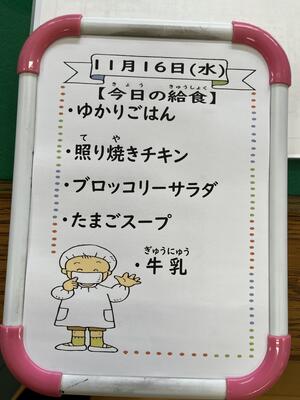 11月16日(水)
きょう きゅうしょく
【今日の給食】
・ゆかりごはん
て や
・照り焼きチキン
・ブロッコリーサラダ
・たまごスープ
ぎゅうにゅう
・牛乳